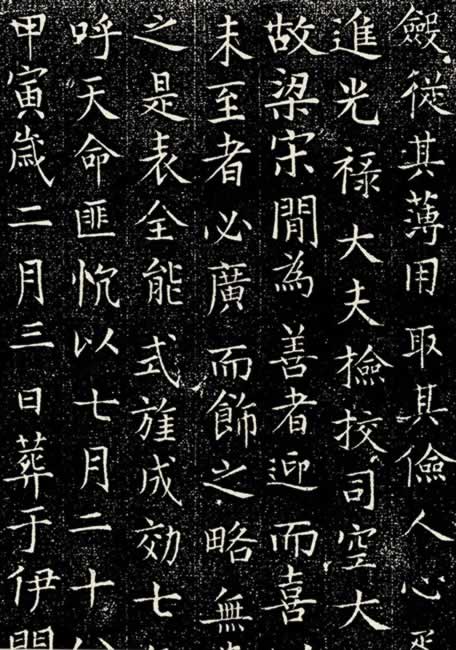 斂從其薄用取其儉人心
進光祿大夫撿挍司空大
故梁宋閒為善者迎而喜
未至者必廣而飾之略無
之是表全能式旌成効七
呼天命匪忱以七月二十八
甲寅歲二月三日葬于伊